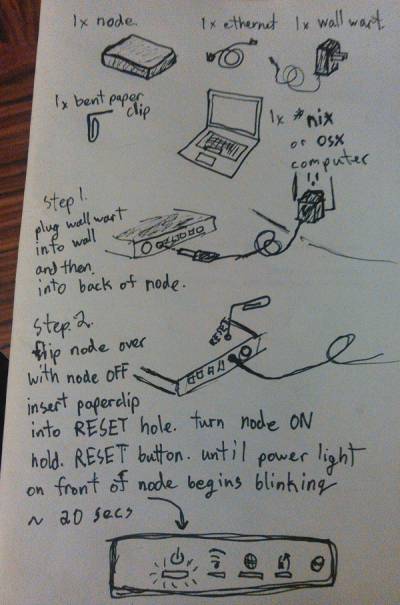 1x node.
1x ethernet
1x wall wart.
1x bent paper
clip
1x *nix
or osx
computer
step 1.
plug wall wart
into wall
and then.
into back of node.
step. 2.
flip node over
RESET
with node OFF
insert paperclip
into RESET hole. turn node ON
hold. RESET button. until power light
on front of node begins blinking
~ 20 secs